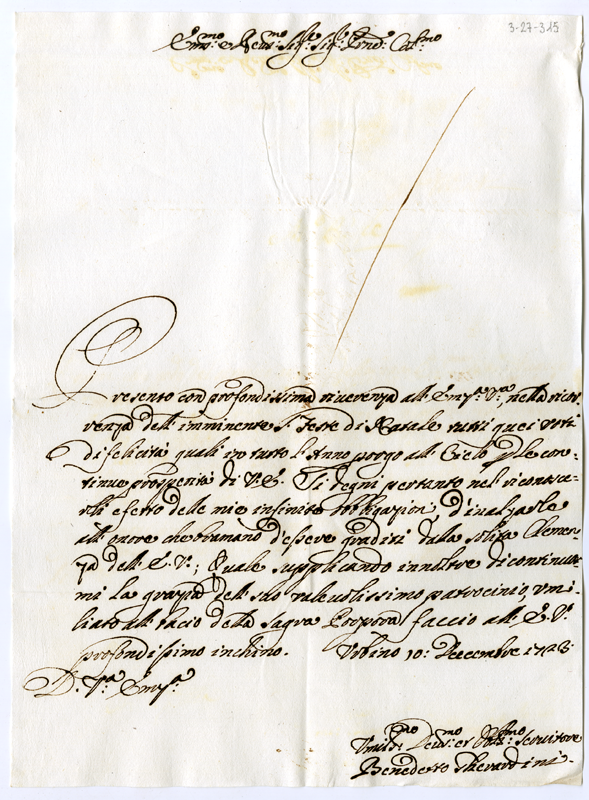 3-27-315
Em̃o: e Reu:mo Sig:re Sig:re Prñe: Col:mo
Presento con profondissima riuerenza all' Em:za V:ra, nella ricor,
renza dell' imminente S. Feste di Natale tutti quei voti
di felicità quali in tutto l'Anno porgo all Cielo p le con,
tinue prosperità di V. E. Si degni pertanto nel riconosce,
rli effetto delle mie infinite obbligazioni, d'inalzarle
all' onore che bramano d'essere graditi dalla solita Clemen,
za dell' E. V.; Quale supplicando inoltre di continuar
mi la grazia dell suo valeuolissimo patrocinio, vmi,
liato all bacio della Sagra Porpora faccio all' E. V.
profondissimo inchino. Vrbino 10: Decembre 1723
D. V:ra Em:za
Vmil:mo Deuo:mo et Obl:mo Seruitore
Benedetto